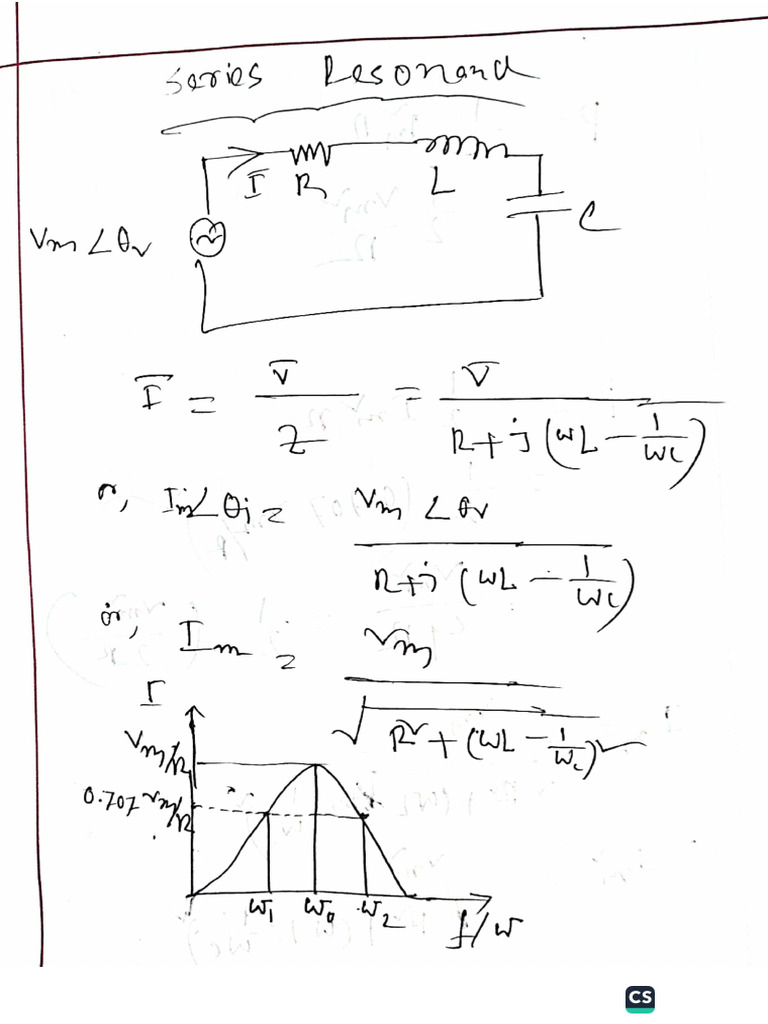 Series Resonand
I R L
C
Vm∠θv
I̅ = V̅/Z = V̅/(R+j(ωL − 1/ωC))
or, Im∠θi = Vm∠θv/(R+j(ωL − 1/ωC))
or, Im = Vm/√(R²+(ωL − 1/ωC)²)
I
Vm/R
0.707 Vm/R
ω1 ω0 ω2
f/ω
CS